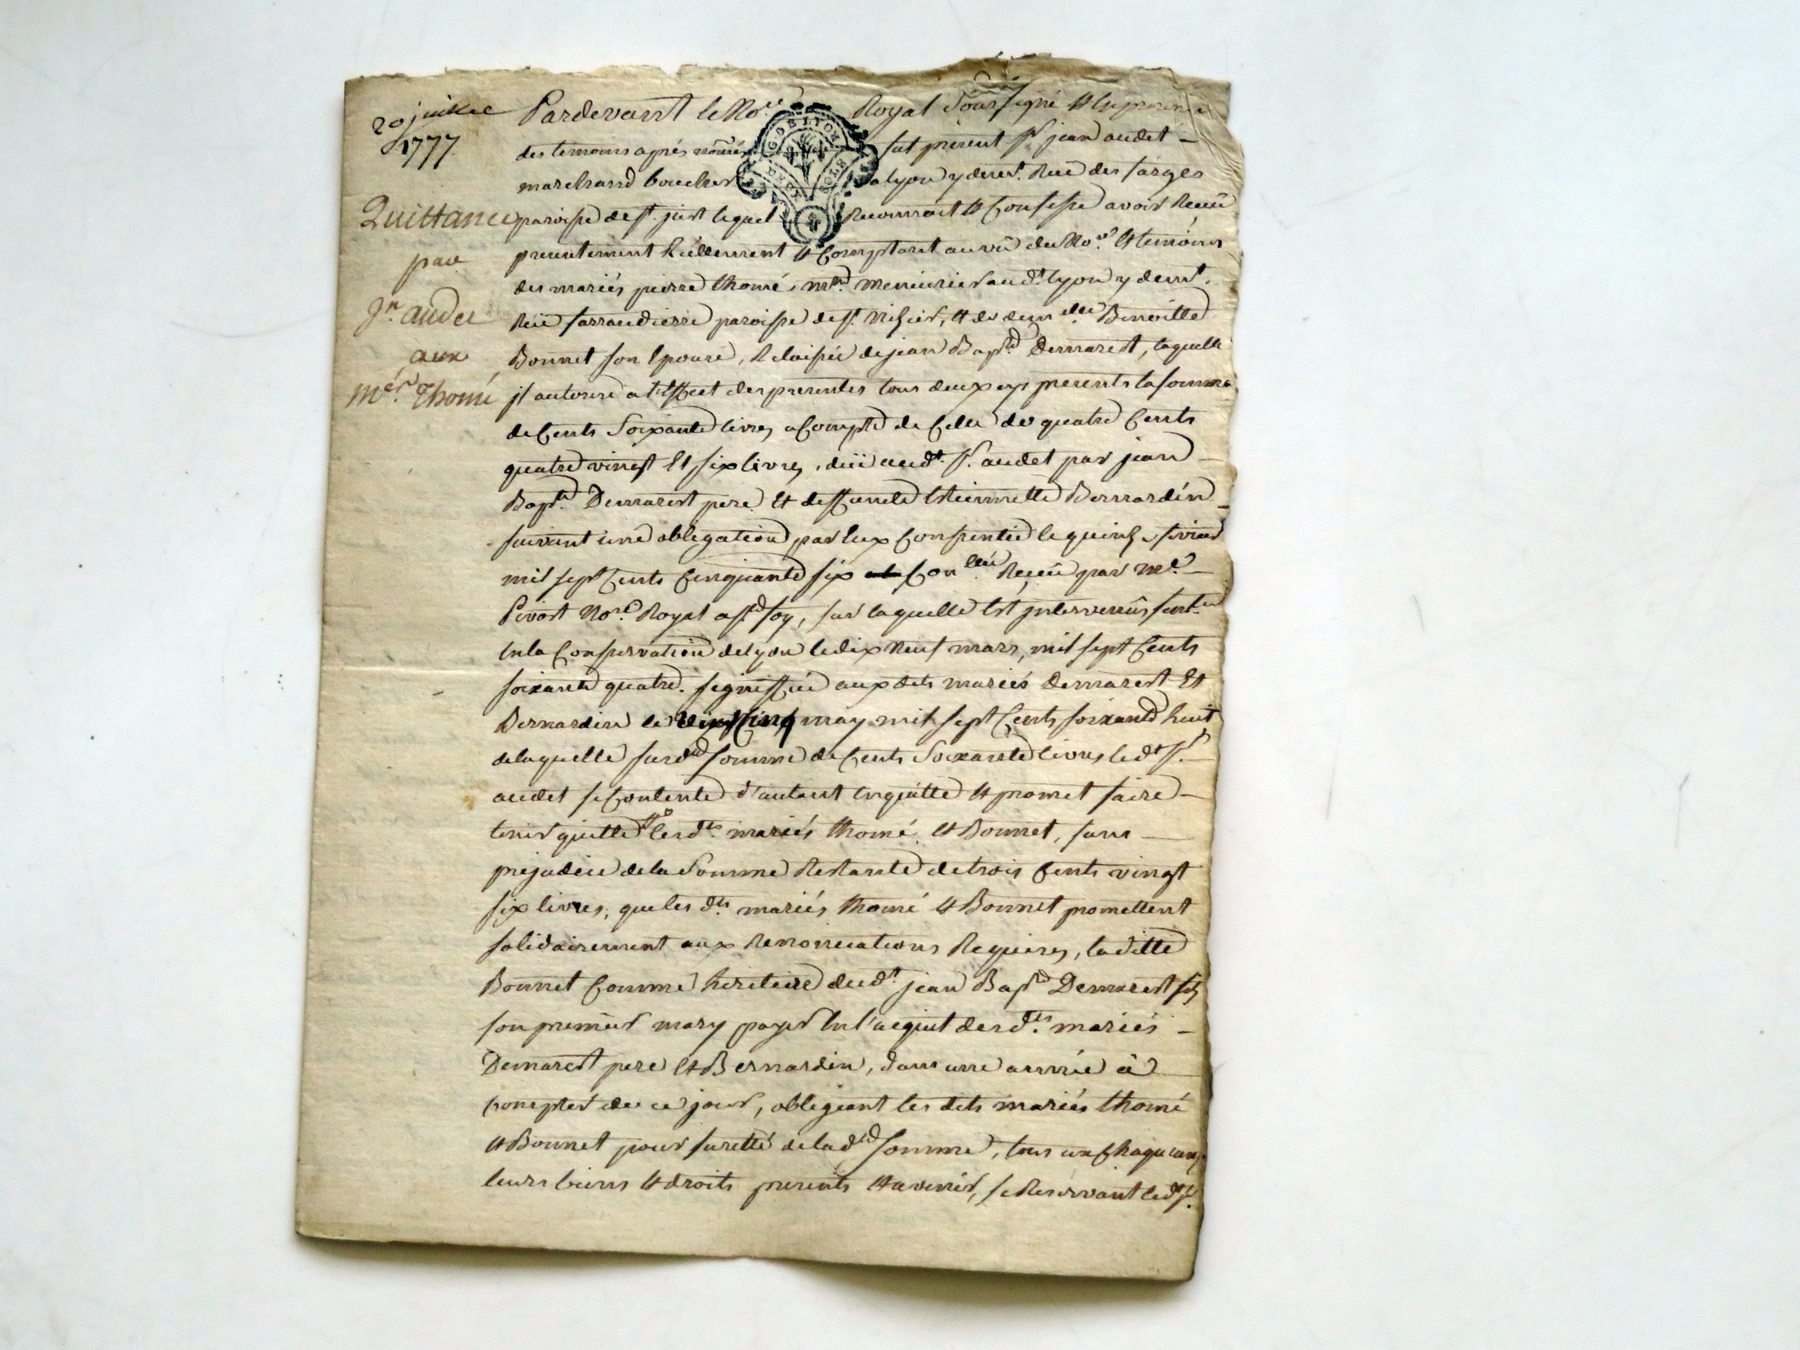 20 juillet
1777
Quittance
par
Jn. audet
aux
Més. Thomé
Pardevant le Nore. Royal Soussigné et en presence
des temoins aprés només fut present sr. jean audet
marchand boucher a lyon y demt. Rue des farges
paroisse de st. just lequel Reconnoit et Confesse avoir Reçeu
presentement Réellement et Comptant au vu du Nore. et temoins
des mariés pierre thomé, md. menuisier aud. lyon y demt.
Rüe ferrandiere paroisse de st. nizier, et de dem.elle Benoitte
Bonnet son Epouse, Relaissée de jean Bapte. Demarest, laquelle
jl autorise a l'effect des presentes tous deux cy presents la somme
de Cents Soixante livres a Compte de Celle de quatre Cents
quatre vingt Et six livres, düe aud. sr. audet par jean
Bapte. Demarest pere Et deffunte Etiennette Bernardin
suivant une obligation par Eux Consentie le quinze fevrier
mil sept Cents Cinquante six Conllée Reçeue par me.
Pivot Nore. Royal a ste. foy, sur laquelle Est jntervenüe sentce.
En la Conservation de lyon le dix neuf mars, mil sept Cents
soixante quatre. signiffiée aux dits mariés Demarest Et
Bernardin le vingt Cinq may mil sept Cents soixante huit
de laquelle susdte. somme de Cents Soixante livres led. sr.
audet se Contente d'autant En quitte et promet faire
tenir quitte lesdts. mariés thomé et Bonnet, sans
prejudice de la Somme Restante de trois Cents vingt
six livres, que les dts. mariés thomé et Bonnet promettent
solidairement aux Renonciations Requises, la ditte
Bonnet Comme heritiere dud. jean Bapte. Demarest fils
son premier mary payer En l'acquit desdts. mariés
Demarest pere et Bernardin, dans une année a
Compter de ce jour, obligeant les dits mariés thomé
et Bonnet pour sureté de lad. somme, tous un Chaqu'un
leurs biens et droits presents et avenir, se Reservant led. sr.